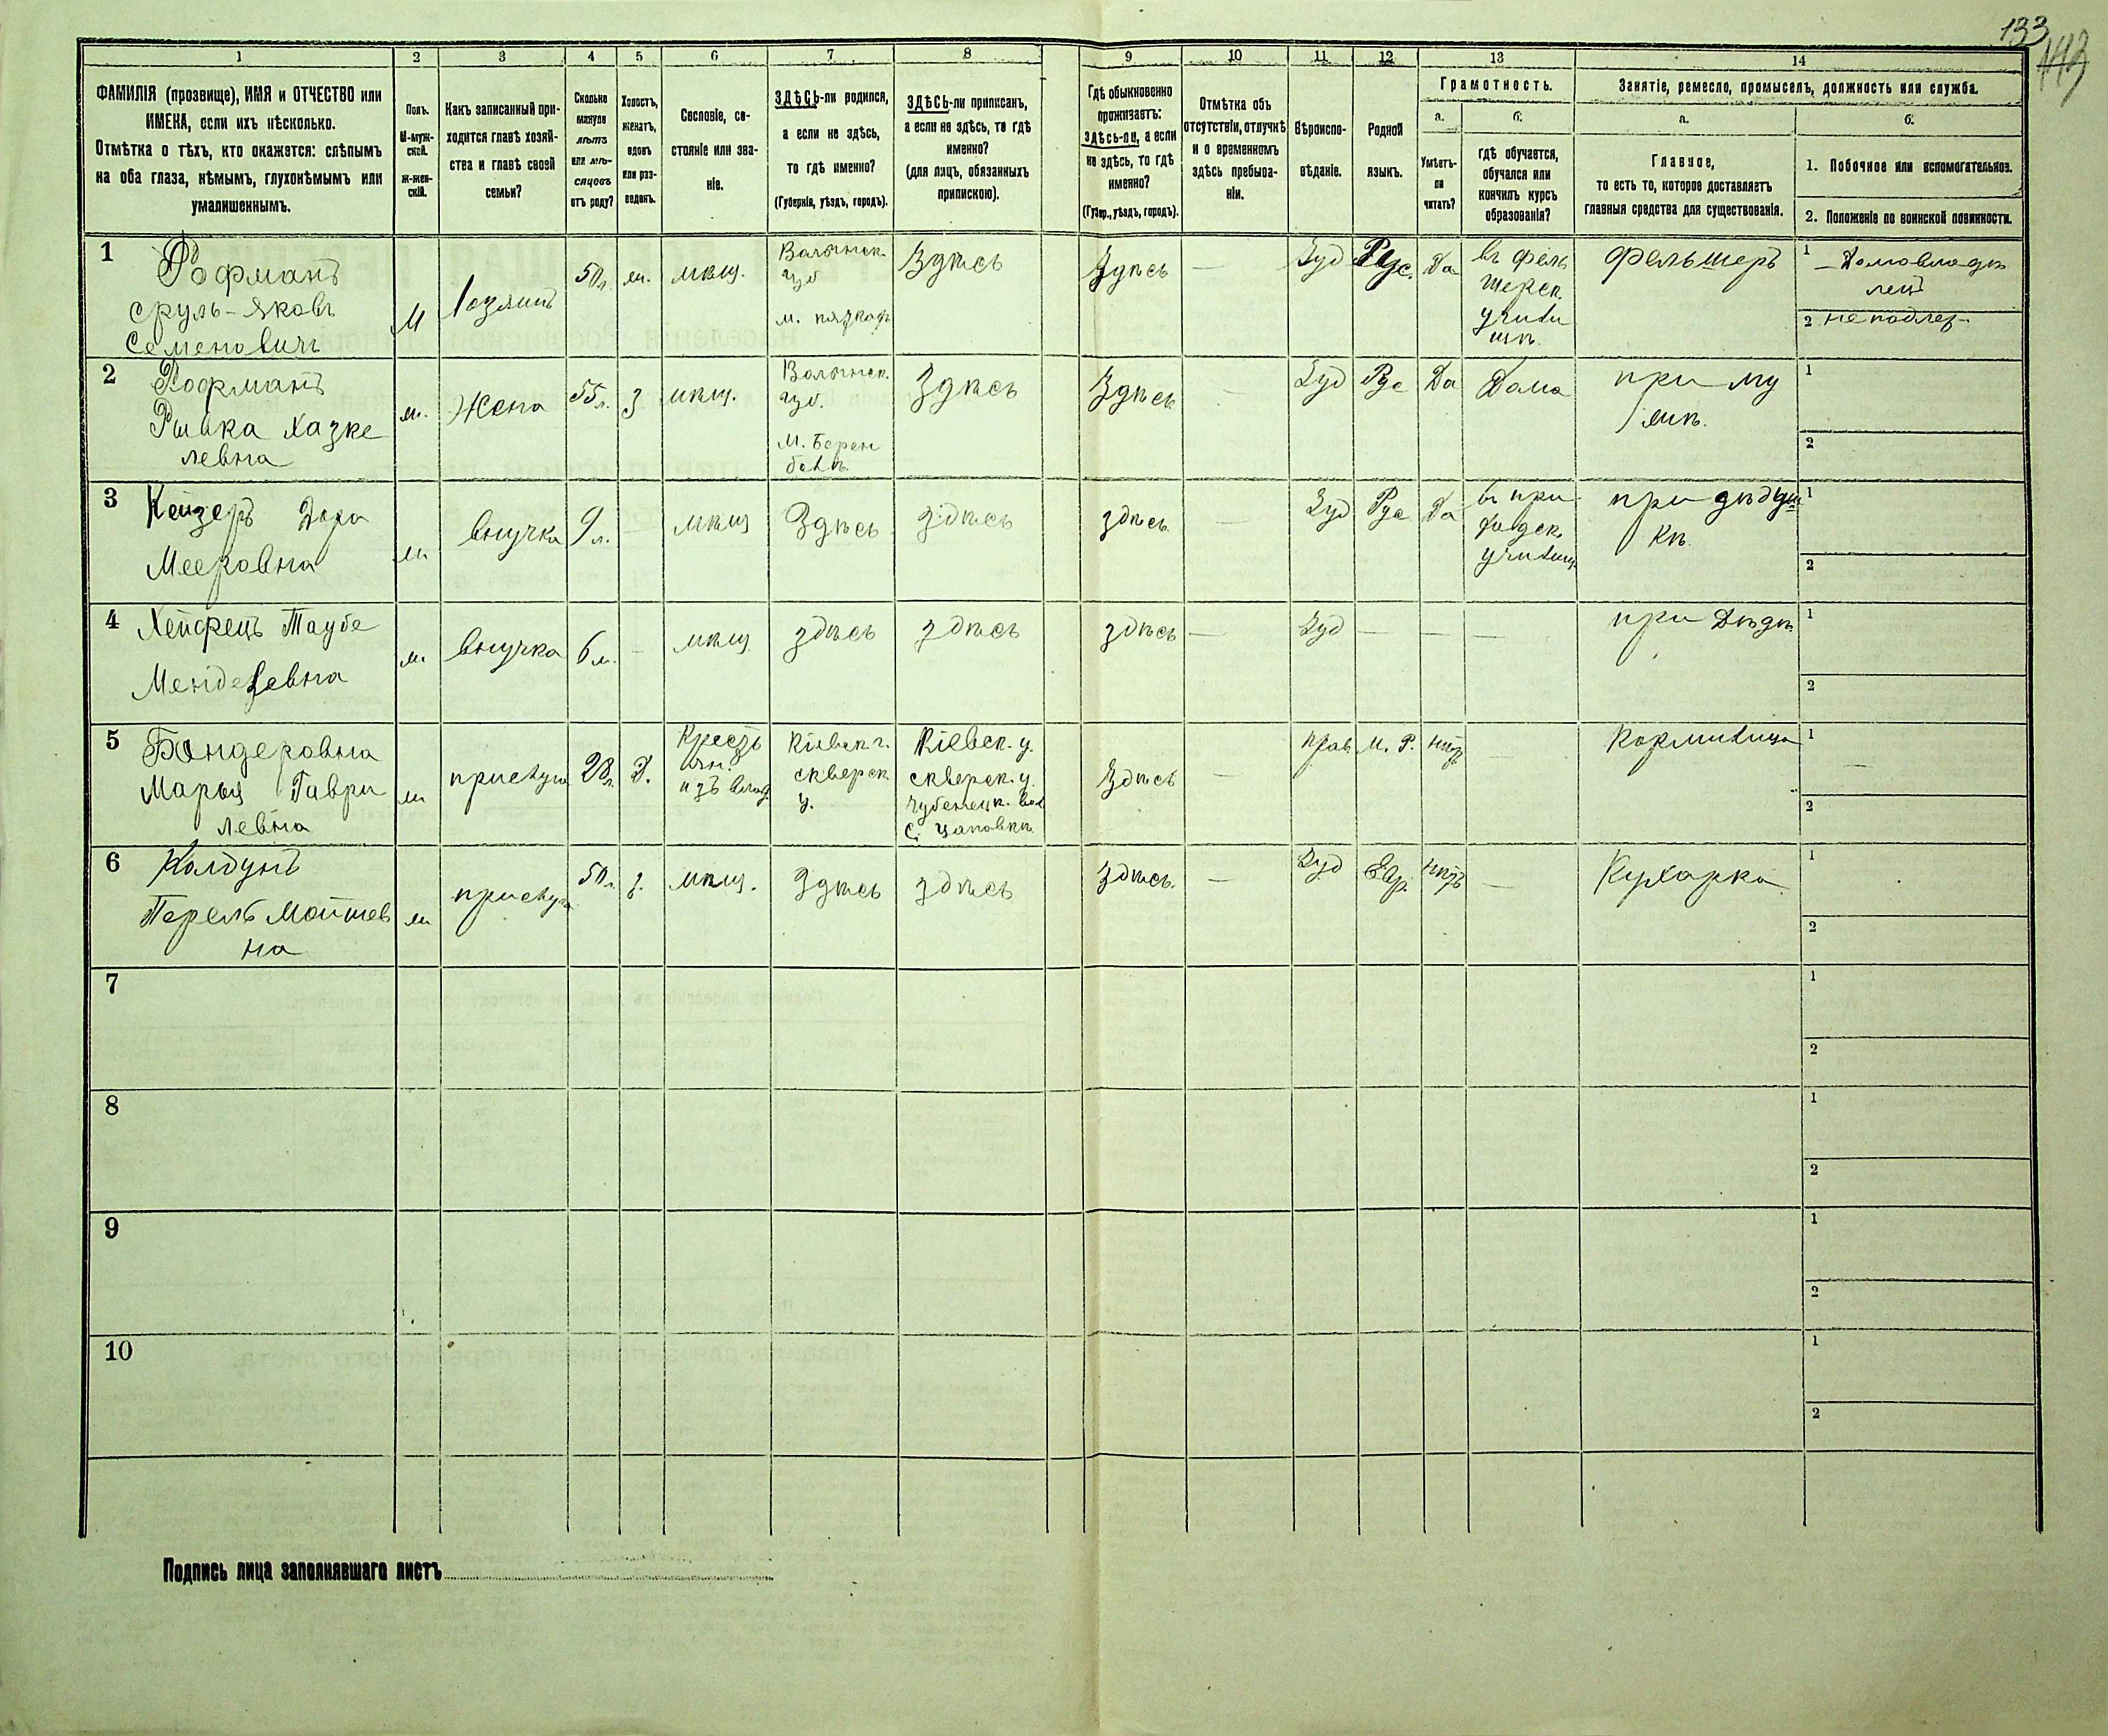 133
143
1 2 3 4 5 6 7 8 9 10 11 12 13 14
ФАМИЛІЯ (прозвище), ИМЯ и ОТЧЕСТВО или
ИМЕНА, если ихъ нѣсколько.
Отмѣтка о тѣхъ, кто окажется: слѣпымъ
на оба глаза, нѣмымъ, глухонѣмымъ или
умалишеннымъ.
Полъ.
М-муж-
ской.
Ж-жен-
скій.
Какъ записанный при-
ходится главѣ хозяй-
ства и главѣ своей
семьи?
Сколько
минуло
лѣтъ
или мѣ-
сяцевъ
отъ роду?
Холостъ,
женатъ,
вдовъ
или раз-
веденъ.
Сословіе, со-
стояніе или зва-
ніе.
ЗДѢСЬ-ли родился,
а если не здѣсь,
то гдѣ именно?
(Губернія, уѣздъ, городъ).
ЗДѢСЬ-ли приписанъ,
а если не здѣсь, то гдѣ
именно?
(для лицъ, обязанныхъ
припискою).
Гдѣ обыкновенно
проживаетъ:
здѣсь-ли, а если
не здѣсь, то гдѣ
именно?
(Губер., уѣздъ, городъ).
Отмѣтка объ
отсутствіи, отлучкѣ
и о временномъ
здѣсь пребыва-
ніи.
Вѣроиспо-
вѣданіе.
Родной
языкъ.
Грамотность.
а.
Умѣетъ-
ли
читать?
б.
гдѣ обучается,
обучался или
кончилъ курсъ
образованія?
Занятіе, ремесло, промыселъ, должность или служба.
а.
Главное,
то есть то, которое доставляетъ
главныя средства для существованія.
б.
1. Побочное или вспомогательное.
2. Положеніе по воинской повинности.
1
Рофманъ
Сруль-Яковъ
Семеновичъ
М
50 л.
мѣщ.
Волынск.
губ
м.
Здѣсь
Здѣсь
—
Іуд
Рус.
Да
въ фель
шерск.
училищ
фельшеръ
1 Домовладѣ
лецъ
2 не подлеж.
2
Рофманъ
Рывка Хазке
левна
ж.
Жена
55 л.
З
мѣщ.
Волынск.
губ.
Здѣсь
Здѣсь
-
Іуд
Рус
Да
Дома
при му
жѣ.
1
2
3
Кейзеръ Дора
Мееровна
ж
внучка
9 л.
—
мѣщ
Здѣсь
здѣсь
здѣсь
—
Іуд
Рус
Да
училищ
при дѣдуш
кѣ.
1
2
4
Хейфецъ Таубе
Менделевна
ж
внучка
6 м.
—
мѣщ
здѣсь
здѣсь
здѣсь
—
Іуд
—
—
—
при Дѣдѣ
1
2
5
Бондеровна
Марья Гаври
левна
ж
прислуга
28 л.
Д.
Крестья
ян.
изъ влад.
Кіевск. г.
сквирск
у.
Кіевск. г.
сквирск. у.
Здѣсь
—
прав
М. Р.
нѣтъ
—
Кормилица
1
—
2
6
Колдунъ
Перель Мошков
на
ж
прислуга
50 л.
в.
мѣщ.
Здѣсь
здѣсь
здѣсь.
—
Іуд
Евр.
нѣтъ
—
Кухарка
1
2
7
1
2
8
1
2
9
1
2
10
1
2
Подпись лица заполнявшаго листъ